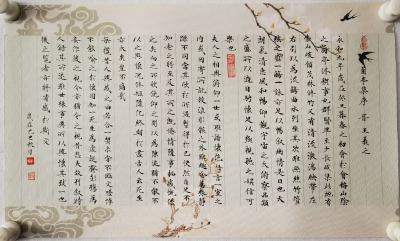 蘭亭集序 晉 王羲之
永和九年歲在癸丑暮春之初會于會稽山陰
之蘭亭修禊事也群賢畢至少長咸集此地有
崇山峻嶺茂林修竹又有清流激湍映帶左
右引以為流觴曲水列坐其次雖無絲竹管
弦之盛一觴一詠亦足以暢敘幽情是日也天
朗氣清惠風和暢仰觀宇宙之大俯察品類
之盛所以遊目騁懷足以極視聽之娛信可
樂也
夫人之相與俯仰一世或取諸懷抱悟言一室之
內或因寄所託放浪形骸之外雖趣舍萬殊靜
躁不同當其欣於所遇暫得於己快然自足不
知老之將至及其所之既倦情隨事遷感慨係
之矣向之所欣俯仰之間以為陳跡猶不能不
以之興懷況修短隨化終期於盡古人云死生
亦大矣豈不痛哉
每覽昔人興感之由若合一契未嘗不臨文嗟悼
不能喻之於懷固知一死生為虛誕齊彭殤為
妄作後之視今亦猶今之視昔悲夫故列敘時
人錄其所述雖世殊事異所以興懷其致一也
後之覽者亦將有感於斯文